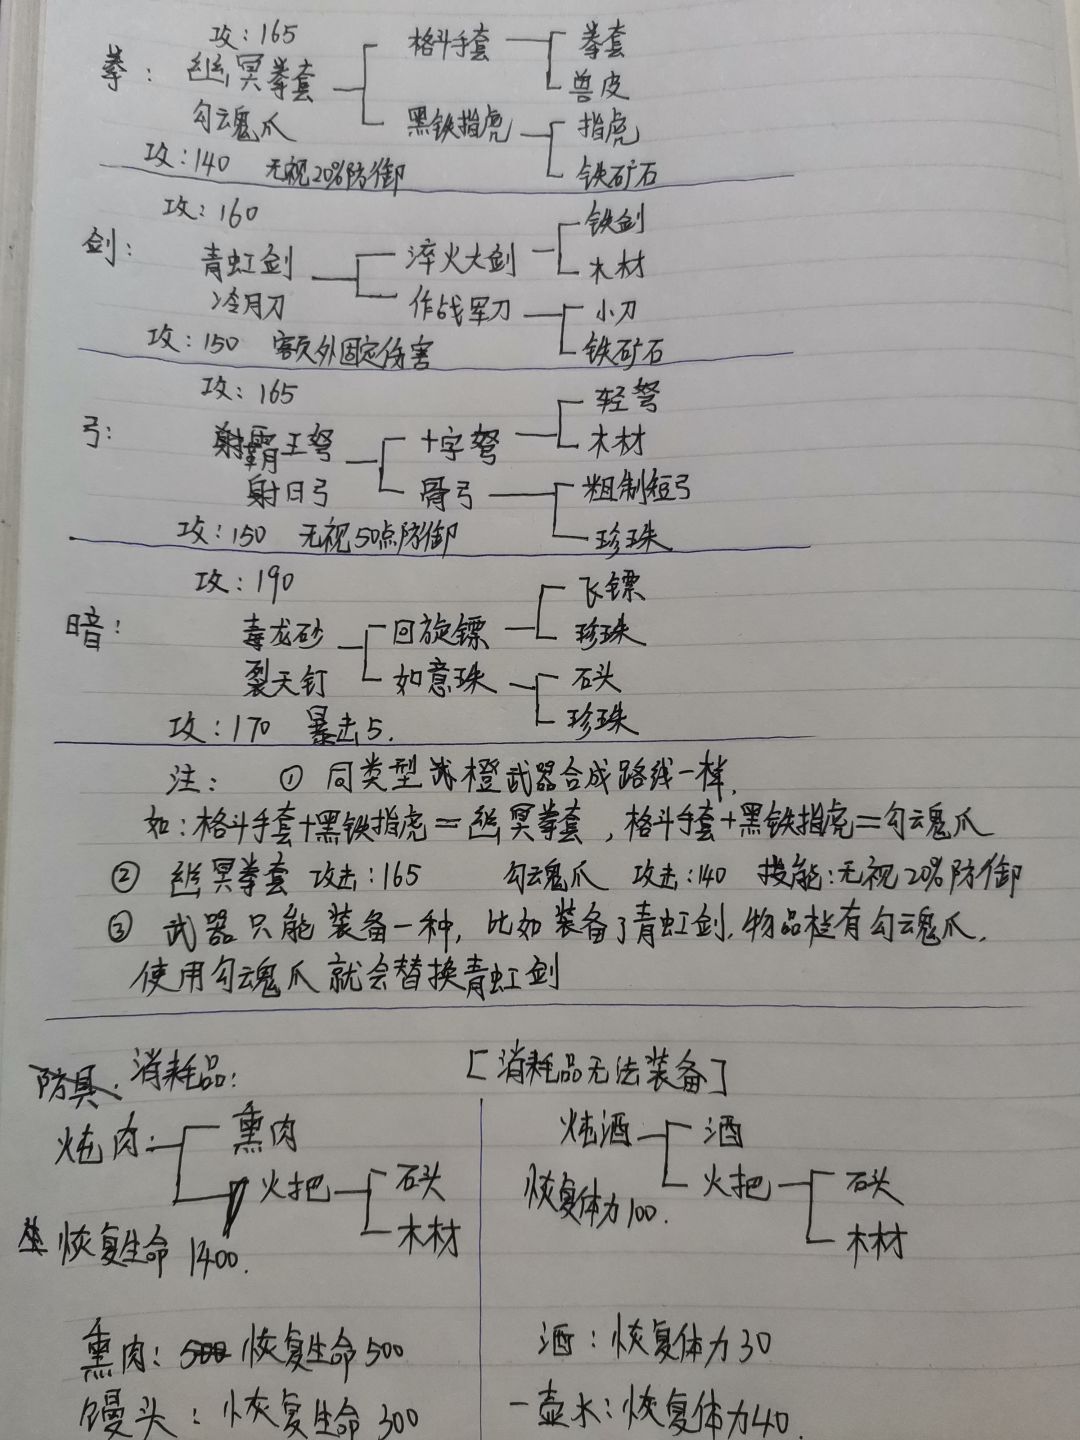 攻：165
拳：
幽冥拳套
格斗手套
拳套
兽皮
勾魂爪
黑铁指虎
指虎
铁矿石
攻：140 无视20%防御
攻：160
剑：
青虹剑
淬火大剑
铁剑
木材
冷月刀
作战军刀
小刀
铁矿石
攻：150 额外固定伤害
攻：165
弓：
霸王弩
十字弩
轻弩
木材
射日弓
骨弓
粗制短弓
珍珠
攻：150 无视50点防御
攻：190
暗：
毒龙砂
回旋镖
飞镖
珍珠
裂天钉
如意珠
石头
珍珠
攻：170 暴击5.
注： ① 同类型橙武器合成路线一样.
如：格斗手套+黑铁指虎=幽冥拳套，格斗手套+黑铁指虎=勾魂爪
② 幽冥拳套 攻击：165 勾魂爪 攻击：140 技能：无视20%防御
③ 武器只能装备一种，比如装备了青虹剑，物品栏有勾魂爪，
使用勾魂爪就会替换青虹剑
防具：消耗品： [消耗品无法装备]
炖肉
熏肉
火把
石头
木材
恢复生命1400.
炖酒
酒
火把
石头
木材
恢复体力100.
熏肉：恢复生命500
馒头：恢复生命300
酒：恢复体力30
一壶水：恢复体力40.